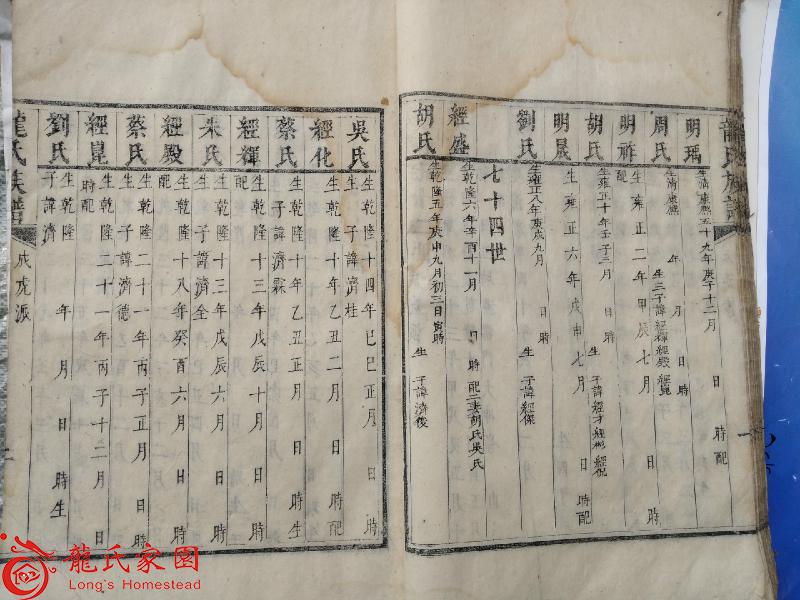 龍氏族譜
明瑀 生清康熙五十九年庚子十二月 日 時配
周氏 生清康熙 年 月 日 時 生三子諱經輝經殿經崑
明祚 生雍正二年甲辰七月 日 時配
胡氏 生雍正十年壬子三月 日 時 生 子諱經才經彬經倪
明晟 生雍正六年戊申七月 日 時配
劉氏 生雍正八年庚戌九月 日 時 生 子諱經傑
七十四世
經盛 生乾隆六年辛酉十一月 日 時配二妻胡氏吳氏
胡氏 生乾隆五年庚申九月初三日寅時 生 子諱濟俊
吳氏 生乾隆十四年己巳正月 日 時生 子諱濟桂
經化 生乾隆十年乙丑二月 日 時配
蔡氏 生乾隆十年乙丑正月 日 時生 子諱濟霖
經輝 生乾隆十三年戊辰十月 日 時配
朱氏 生乾隆十三年戊辰六月 日 時生 子諱濟全
經殿 生乾隆十八年癸酉六月 日 時配
蔡氏 生乾隆二十一年丙子正月 日 時生 子諱濟德
經崑 生乾隆二十一年丙子十二月 日 時配
劉氏 生乾隆 年 月 日 時生 子諱濟
龍氏族譜 成虎派
龍氏家園
Long's Homestead